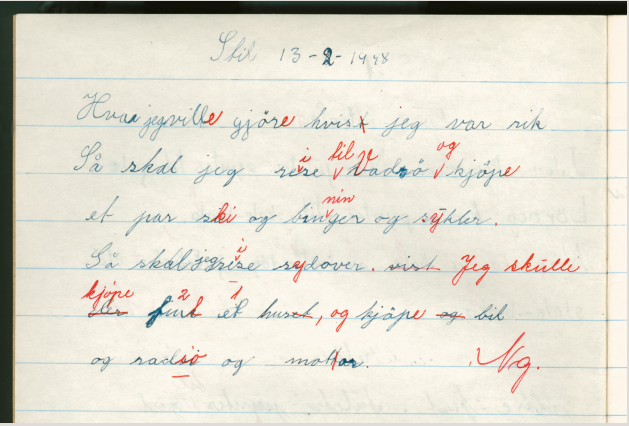 Stil 13-2-1948
Hva jeg ville gjöre hvis jeg var rik
i bil og
Så skal jeg reise Vadsö kjöpe
nin
et par ski og binger og sykler.
Så skal jeg reise sydover. vist Jeg skulli
kjöpe 2 1
fint et hus, og kjöpe og bil
og radio og motor. Ng.